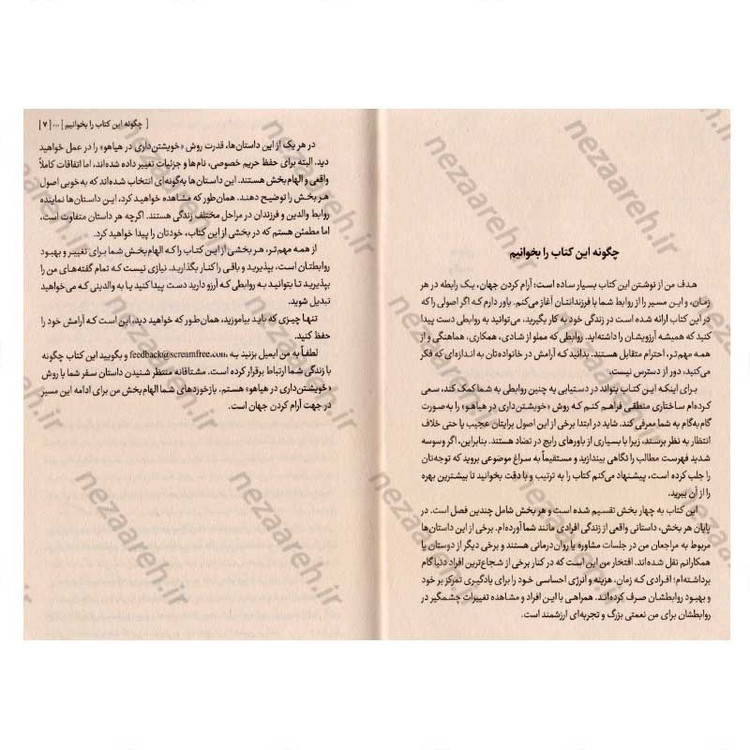 چگونه این کتاب را بخوانیم
هدف من از نوشتن این کتاب بسیار ساده است: آرام کردن جهان، یک رابطه در هر
زمان، و این مسیر را از روابط شما با فرزندانتان آغاز می‌کنم. باور دارم که اگر اصولی را که
در این کتاب ارائه شده است در زندگی خود به کار بگیرید، می‌توانید به روابطی دست پیدا
کنید که همیشه آرزویشان را داشته‌اید. روابطی که مملو از شادی، همکاری، هماهنگی و از
همه مهم‌تر، احترام متقابل هستند. بدانید که آرامش در خانواده‌تان به اندازه‌ای که فکر
می‌کنید، دور از دسترس نیست.
برای اینکه این کتاب بتواند در دستیابی به چنین روابطی به شما کمک کند، سعی
کرده‌ام ساختاری منطقی فراهم کنم که روش «خویشتن‌داری در هیاهو» را به‌صورت
گام‌به‌گام به شما معرفی کند. شاید در ابتدا برخی از این اصول برایتان عجیب یا حتی خلاف
انتظار به نظر برسند، زیرا با بسیاری از باورهای رایج در تضاد هستند. بنابراین، اگر وسوسه
شدید فهرست مطالب را نگاهی بیندازید و مستقیماً به سراغ موضوعی بروید که توجه‌تان
را جلب کرده است، پیشنهاد می‌کنم کتاب را به ترتیب و با دقت بخوانید تا بیشترین بهره
را از آن ببرید.
این کتاب به چهار بخش تقسیم شده است و هر بخش شامل چندین فصل است. در
پایان هر بخش، داستانی واقعی از زندگی افرادی مانند شما آورده‌ام. برخی از این داستان‌ها
مربوط به مراجعان من در جلسات مشاوره یا روان‌درمانی هستند و برخی دیگر از دوستان یا
همکارانم نقل شده‌اند. افتخار من این است که در کنار برخی از شجاع‌ترین افراد دنیا گام
برداشته‌ام؛ افرادی که زمان، هزینه و انرژی احساسی خود را برای یادگیری تمرکز بر خود
و بهبود روابطشان صرف کرده‌اند. همراهی با این افراد و مشاهده تغییرات چشمگیر در
روابطشان برای من نعمتی بزرگ و تجربه‌ای ارزشمند است.
[ چگونه این کتاب را بخوانیم ] ... [ ۷ ]
در هر یک از این داستان‌ها، قدرت روش «خویشتن‌داری در هیاهو» را در عمل خواهید
دید. البته برای حفظ حریم خصوصی، نام‌ها و جزئیات تغییر داده شده‌اند، اما اتفاقات کاملاً
واقعی و الهام‌بخش هستند. این داستان‌ها به‌گونه‌ای انتخاب شده‌اند که به‌خوبی اصول
هر بخش را توضیح دهند. همان‌طور که مشاهده خواهید کرد، این داستان‌ها نماینده
روابط والدین و فرزندان در مراحل مختلف زندگی هستند. اگرچه هر داستان متفاوت است،
اما مطمئن هستم که در بخشی از این کتاب، خودتان را پیدا خواهید کرد.
از همه مهم‌تر، هر بخشی از این کتاب را که الهام‌بخش شما برای تغییر و بهبود
روابطتان است، بپذیرید و باقی را کنار بگذارید. نیازی نیست که تمام گفته‌های من را
بپذیرید تا بتوانید به روابطی که آرزو دارید دست پیدا کنید یا به والدینی که می‌خواهید
تبدیل شوید.
تنها چیزی که باید بیاموزید، همان‌طور که خواهید دید، این است که آرامش خود را
حفظ کنید.
لطفاً به من ایمیل بزنید به feedback@screamfree.com و بگویید این کتاب چگونه
با زندگی شما ارتباط برقرار کرده است. مشتاقانه منتظر شنیدن داستان سفر شما با روش
«خویشتن‌داری در هیاهو» هستم. بازخوردهای شما الهام‌بخش من برای ادامه این مسیر
در جهت آرام کردن جهان است.
nezaareh.ir
nezaareh.ir
nezaareh.ir
nezaareh.ir
nezaareh.ir
nezaareh.ir
nezaareh.ir
nezaareh.ir
nezaareh.ir